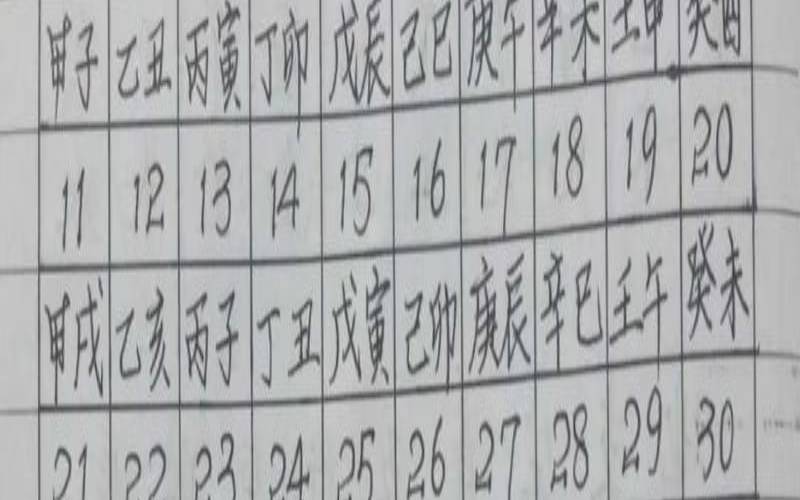 甲子 乙丑 丙寅 丁卯 戊辰 己巳 庚午 辛未 壬申 癸酉
11 12 13 14 15 16 17 18 19 20
甲戌 乙亥 丙子 丁丑 戊寅 己卯 庚辰 辛巳 壬午 癸未
21 22 23 24 25 26 27 28 29 30